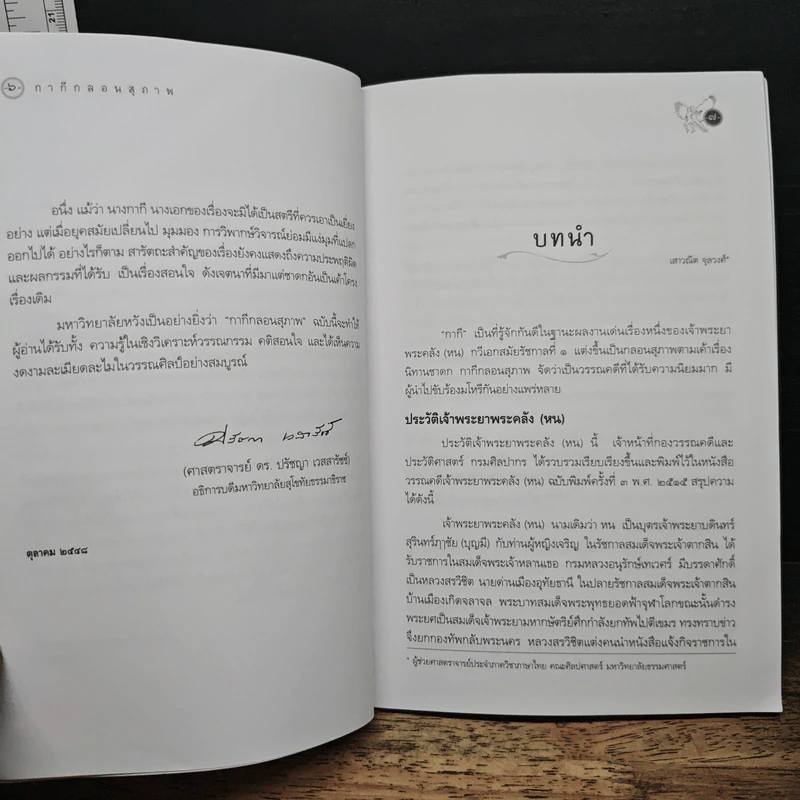 21
๖
กากีกลอนสุภาพ
อนึ่ง แม้ว่า นางกากี นางเอกของเรื่องจะมิได้เป็นสตรีที่ควรเอาเป็นเยี่ยง
อย่าง แต่เมื่อยุคสมัยเปลี่ยนไป มุมมอง การวิพากษ์วิจารณ์ย่อมมีแง่มุมที่แปลก
ออกไปได้ อย่างไรก็ตาม สารัตถะสำคัญของเรื่องยังคงแสดงถึงความประพฤติผิด
และผลกรรมที่ได้รับ เป็นเรื่องสอนใจ ดังเจตนาที่มีมาแต่ชาดกอันเป็นเค้าโครง
เรื่องเดิม
มหาวิทยาลัยหวังเป็นอย่างยิ่งว่า "กากีกลอนสุภาพ" ฉบับนี้จะทำให้
ผู้อ่านได้รับทั้ง ความรู้ในเชิงวิเคราะห์วรรณกรรม คติสอนใจ และได้เห็นความ
งดงามละเมียดละไมในวรรณศิลป์อย่างสมบูรณ์
(ศาสตราจารย์ ดร. ปรัชญา เวสสารัชช์)
อธิการบดีมหาวิทยาลัยสุโขทัยธรรมาธิราช
ตุลาคม ๒๕๔๘
๗
บทนำ
เสาวณิต จุลวงศ์*
"กากี" เป็นที่รู้จักกันดีในฐานะผลงานเด่นเรื่องหนึ่งของเจ้าพระยา
พระคลัง (หน) กวีเอกสมัยรัชกาลที่ ๑ แต่งขึ้นเป็นกลอนสุภาพตามเค้าเรื่อง
นิทานชาดก กากีกลอนสุภาพ จัดว่าเป็นวรรณคดีที่ได้รับความนิยมมาก มี
ผู้นำไปขับร้องมโหรีกันอย่างแพร่หลาย
ประวัติเจ้าพระยาพระคลัง (หน)
ประวัติเจ้าพระยาพระคลัง (หน) นี้ เจ้าหน้าที่กองวรรณคดีและ
ประวัติศาสตร์ กรมศิลปากร ได้รวบรวมเรียบเรียงขึ้นและพิมพ์ไว้ในหนังสือ
วรรณคดีเจ้าพระยาพระคลัง (หน) ฉบับพิมพ์ครั้งที่ ๓ พ.ศ. ๒๕๑๕ สรุปความ
ได้ดังนี้
เจ้าพระยาพระคลัง (หน) นามเดิมว่า หน เป็นบุตรเจ้าพระยาบดินทร์
สุรินทร์ฦๅชัย (บุญมี) กับท่านผู้หญิงเจริญ ในรัชกาลสมเด็จพระเจ้าตากสิน ได้
รับราชการในสมเด็จพระเจ้าหลานเธอ กรมหลวงอนุรักษ์เทเวศร์ มีบรรดาศักดิ์
เป็นหลวงสรวิชิต นายด่านเมืองอุทัยธานี ในปลายรัชกาลสมเด็จพระเจ้าตากสิน
บ้านเมืองเกิดจลาจล พระบาทสมเด็จพระพุทธยอดฟ้าจุฬาโลกขณะนั้นดำรง
พระยศเป็นสมเด็จเจ้าพระยามหากษัตริย์ศึกกำลังยกทัพไปตีเขมร ทรงทราบข่าว
จึงยกกองทัพกลับพระนคร หลวงสรวิชิตแต่งคนนำหนังสือแจ้งกิจราชการใน
* ผู้ช่วยศาสตราจารย์ประจำภาควิชาภาษาไทย คณะศิลปศาสตร์ มหาวิทยาลัยธรรมศาสตร์